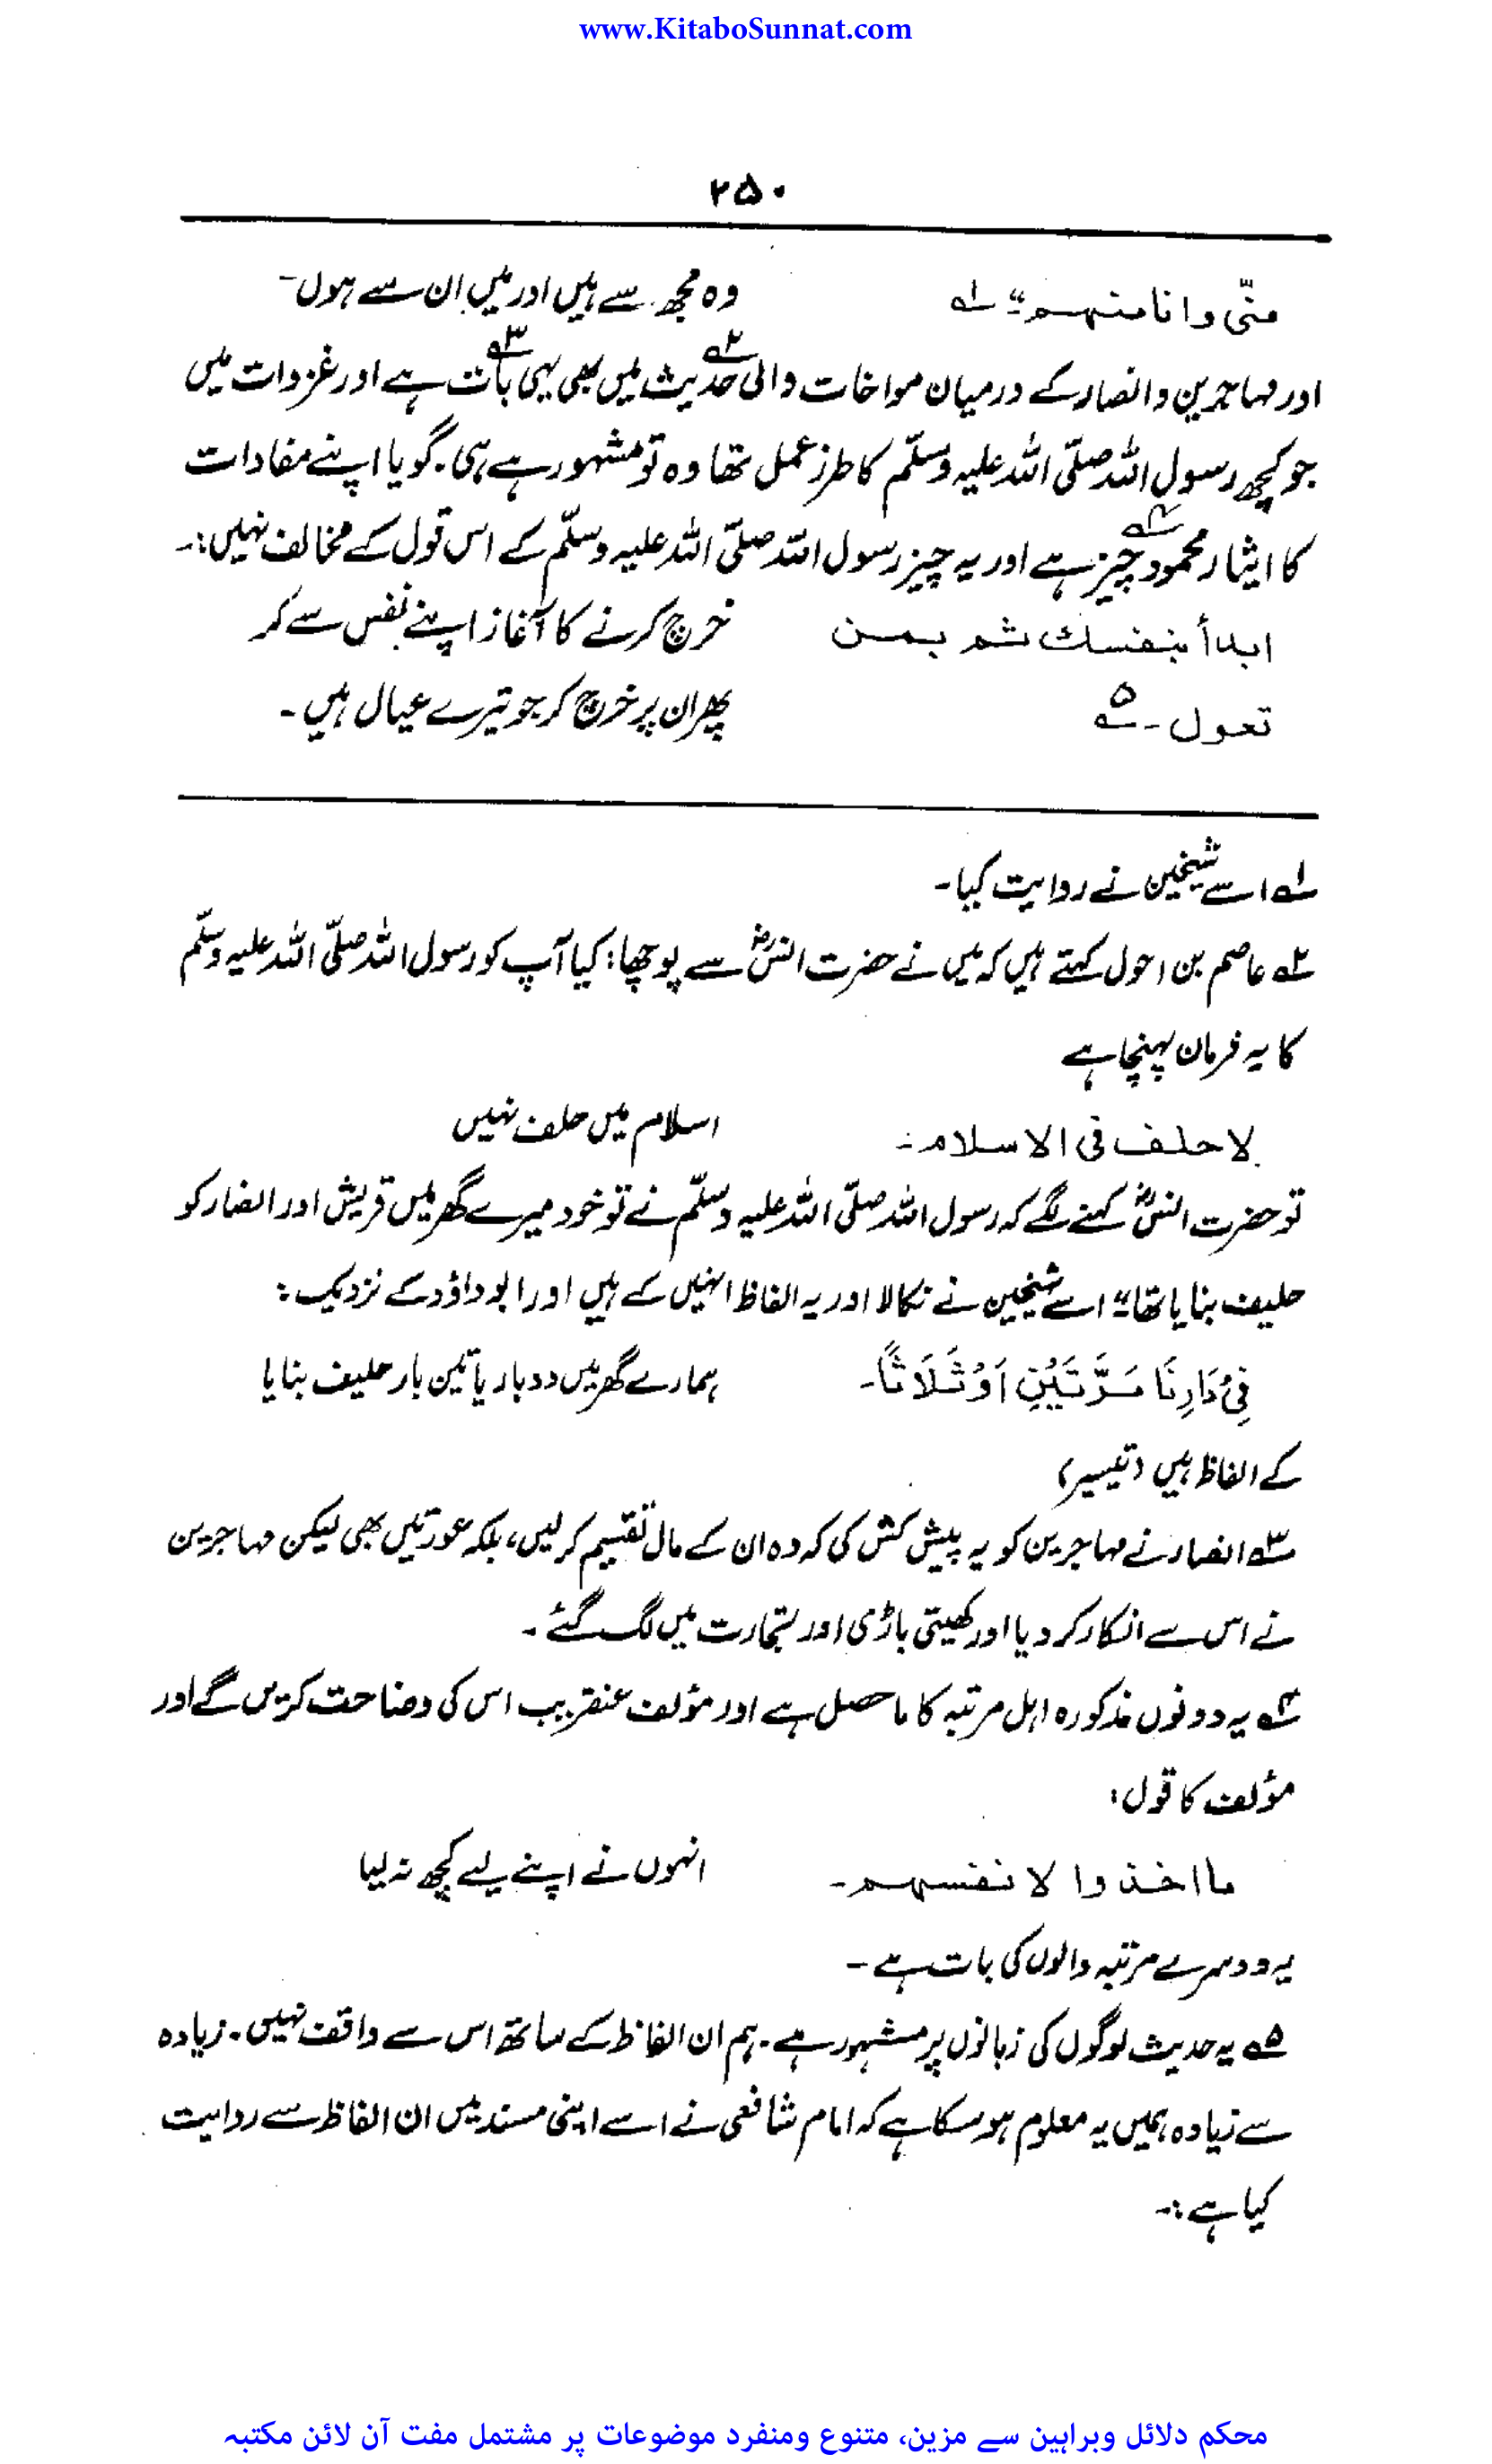 www.KitaboSunnat.com
۲۵۰
منّی وانا منہم‘‘ ۱؎ وہ مجھ سے ہیں اور میں ان سے ہوں۔
اور مہاجرین و انصار کے درمیان مواخات والی حدیث۲؎ میں بھی یہی بات۳؎ ہے اور غزوات میں
جو کچھ رسول اللہ صلّی اللہ علیہ وسلّم کا طرز عمل تھا وہ تو مشہور ہے ہی۔ گویا اپنے مفادات
کا ایثار محمود چیز۴؎ ہے اور یہ چیز رسول اللہ صلّی اللہ علیہ وسلّم کے اس قول کے مخالف نہیں:۔
ابدأ بنفسك ثم بمن خرچ کرنے کا آغاز اپنے نفس سے کر
تعول۔ ۵؎ پھر ان پر خرچ کر جو تیرے عیال ہیں۔
۱؎ اسے شیخین نے روایت کیا۔
۲؎ عاصم بن احول کہتے ہیں کہ میں نے حضرت انسؓ سے پوچھا: کیا آپ کو رسول اللہ صلّی اللہ علیہ وسلّم
کا یہ فرمان پہنچا ہے
لا حلف فی الاسلام۔ اسلام میں حلف نہیں
تو حضرت انسؓ کہنے لگے کہ رسول اللہ صلّی اللہ علیہ وسلّم نے تو خود میرے گھر میں قریش اور انصار کو
حلیف بنایا تھا‘‘ اسے شیخین نے نکالا اور یہ الفاظ انہیں کے ہیں اور ابوداؤد کے نزدیک:
فِیْ دَارِنَا مَرَّتَیْنِ اَوْ ثَلَاثًا۔ ہمارے گھر میں دوبار یا تین بار حلیف بنایا
کے الفاظ ہیں (تیسیر)
۳؎ انصار نے مہاجرین کو یہ پیش کش کی کہ وہ ان کے مال تقسیم کرلیں، بلکہ عورتیں بھی لیکن مہاجرین
نے اس سے انکار کر دیا اور کھیتی باڑی اور تجارت میں لگ گئے۔
۴؎ یہ دونوں مذکورہ اہل مرتبہ کا ماحصل ہے اور مؤلف عنقریب اس کی وضاحت کریں گے اور
مؤلف کا قول:
ما اخذوا لا نفسہم۔ انہوں نے اپنے لیے کچھ نہ لیا
یہ دوسرے مرتبہ والوں کی بات ہے۔
۵؎ یہ حدیث لوگوں کی زبانوں پر مشہور ہے۔ ہم ان الفاظ کے ساتھ اس سے واقف نہیں۔ زیادہ
سے زیادہ ہمیں یہ معلوم ہوسکا ہے کہ امام شافعی نے اسے اپنی مسند میں ان الفاظ سے روایت
کیا ہے:۔
محکم دلائل وبراہین سے مزین، متنوع ومنفرد موضوعات پر مشتمل مفت آن لائن مکتبہ